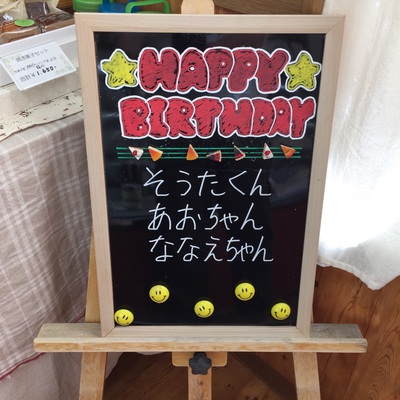 焼き菓子セット
HAPPY
BIRTHDAY
そうたくん
あおちゃん
ななえちゃん